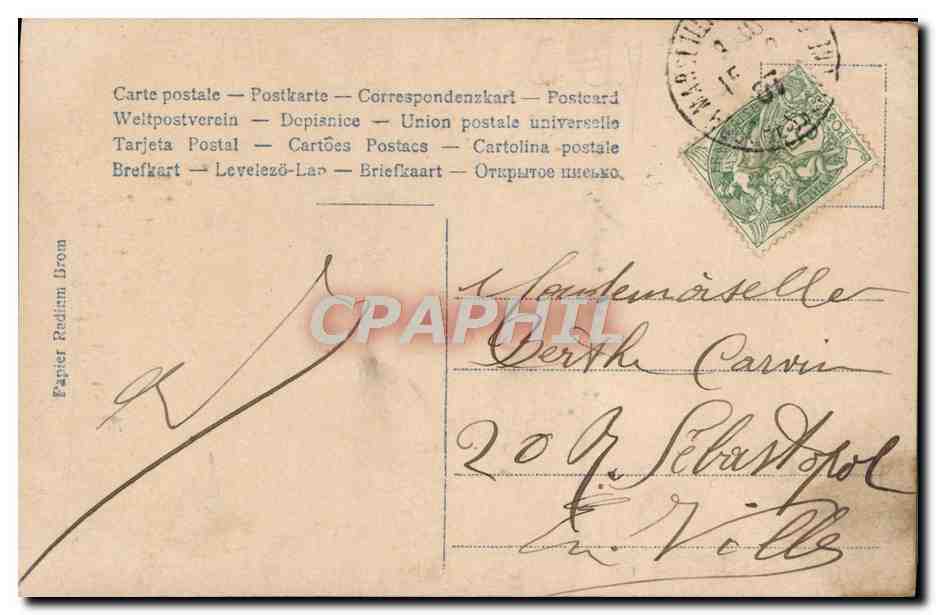 Carte postale — Postkarte — Correspondenzkart — Postcard
Weltpostverein — Dopisnice — Union postale universelle
Tarjeta Postal — Cartões Postaes — Cartolina postale
Brefkart — Levelező-Lap — Briefkaart — Открытое письмо.
Papier Radium Brom
CPAPHIL
Mademoiselle
Berthe Carvin
20 R. Sébastopol
En Ville